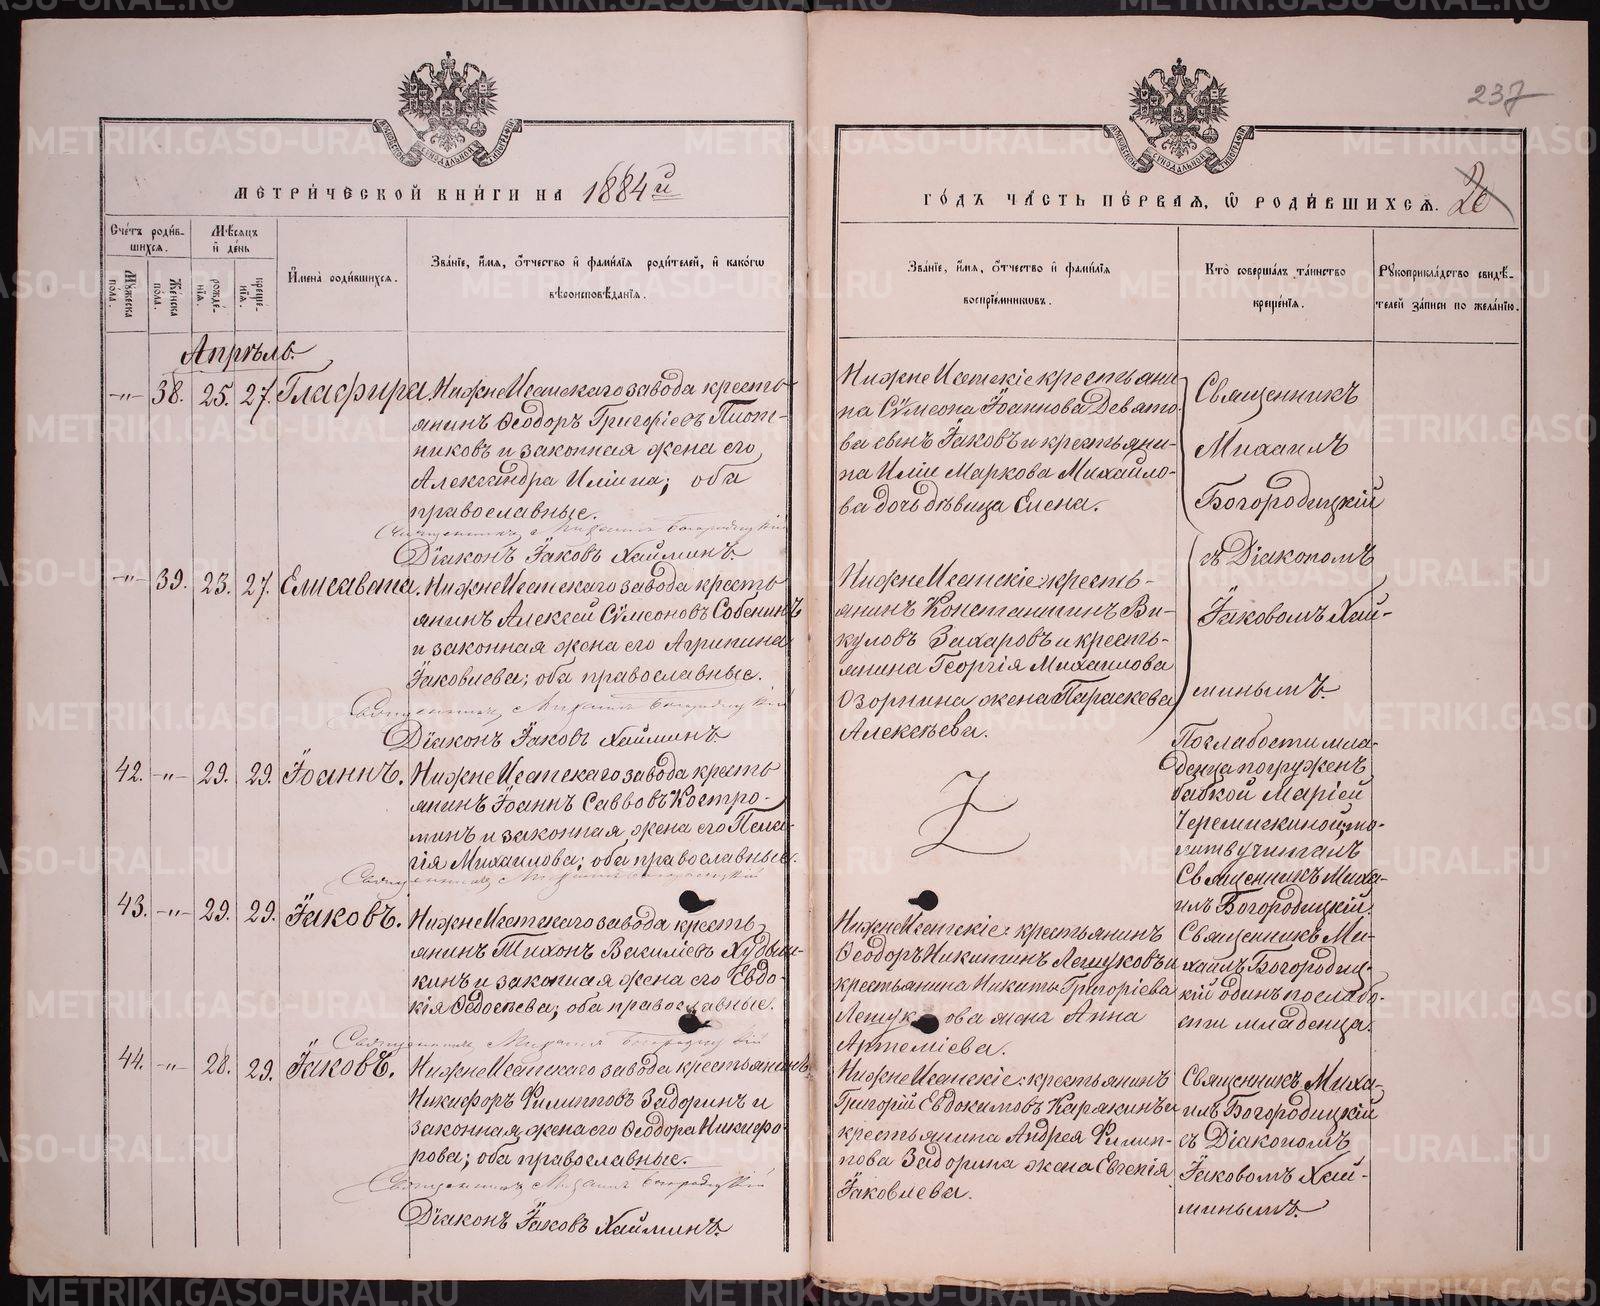 237
МЕТРИ́ЧЕСКОЙ КНИ́ГИ НА 1884й
ГО́ДЪ ЧА́СТЬ ПЕ́РВАЯ, Ѿ РОДИ́ВШИХСЯ. 26
Сче́тъ роди́в-
шихся.
Мѣ́сяцъ
и де́нь
Му́жеска
по́ла.
Же́нска
по́ла.
рожде́-
нїя.
креще́-
нїя.
И҆мена̀ роди́вшихся.
Зва́нїе, и҆́мя, о҆́тчество и҆ фами́лїя роди́телей, и҆ како́гѡ
вѣроисповѣ́данїя.
Зва́нїе, и҆́мя, о҆́тчество и҆ фами́лїя
воспрїе́мникѡвъ.
Кто̀ соверша́лъ та́инство
креще́нїя.
Рꙋкоприкла́дство свидѣ́-
телей за́писи по жела́нїю.
Апрѣль.
-"- 38. 25. 27. Глафира. НижнеИсетскаго завода кресть
янинъ Ѳеодоръ Григоріевъ Плот-
никовъ и законная жена его
Александра Иліина; оба
православные.
Священникъ Михаилъ Богородицкій
Діаконъ Іаковъ Хайминъ.
НижнеИсетскіе: крестьяни
на Сѵмеона Іоаннова Девято-
ва сынъ Іаковъ и крестьяни-
на Иліи Маркова Михайло-
ва дочь дѣвица Елена.
Священникъ
Михаилъ
Богородицкій
съ Діакономъ
Іаковомъ Хай-
минымъ.
-"- 39. 23. 27. Елисавета. НижнеИсетскаго завода кресть
янинъ Алексей Сѵмеоновъ Собенинъ
и законная жена его Агрипина
Іаковлева; оба православные.
Священникъ Михаилъ Богородицкій
Діаконъ Іаковъ Хайминъ.
НижнеИсетскіе: кресть-
янинъ Константинъ Ви-
куловъ Захаровъ и кресть-
янина Георгія Михаилова
Озорнина жена Параскева
Алексѣева.
42. -"- 29. 29. Іоаннъ. НижнеИсетскаго завода кресть
янинъ Іоаннъ Саввовъ Костро-
минъ и законная жена его Пела-
гія Михаилова; оба православные.
Священникъ Михаилъ Богородицкій
По слабости мла-
денца погруженъ
бабкой Маріей
Черемискиной; мо-
литву читалъ
Священникъ Миха-
илъ Богородицкій.
43. -"- 29. 29. Іаковъ. НижнеИсетскаго завода кресть
янинъ Тихонъ Василіевъ Худы
кинъ и законная жена его Евдо-
кія Ѳедосѣева; оба православные.
Священникъ Михаилъ Богородицкій
НижнеИсетскіе: крестьянинъ
Ѳеодоръ Никитинъ Лещуковъ и
крестьянина Никиты Григоріева
Лещукова жена Анна
Артеміева.
Священникъ Ми-
хаилъ Богородиц-
кій одинъ по слабо-
сти младенца.
44. -"- 28. 29. Іаковъ. НижнеИсетскаго завода крестьянинъ
Никифоръ Филипповъ Задоринъ и
законная жена его Ѳеодора Никифо
рова; оба православные.
Священникъ Михаилъ Богородицкій
Діаконъ Іаковъ Хайминъ.
НижнеИсетскіе: крестьянинъ
Григорій Евдокимовъ Карякинъ и
крестьянина Андрея Филип-
пова Задорина жена Евгенія
Іаковлева.
Священникъ Миха-
илъ Богородицкій
съ Діакономъ
Іаковомъ Хай-
минымъ.
METRIKI.GASO-URAL.RU